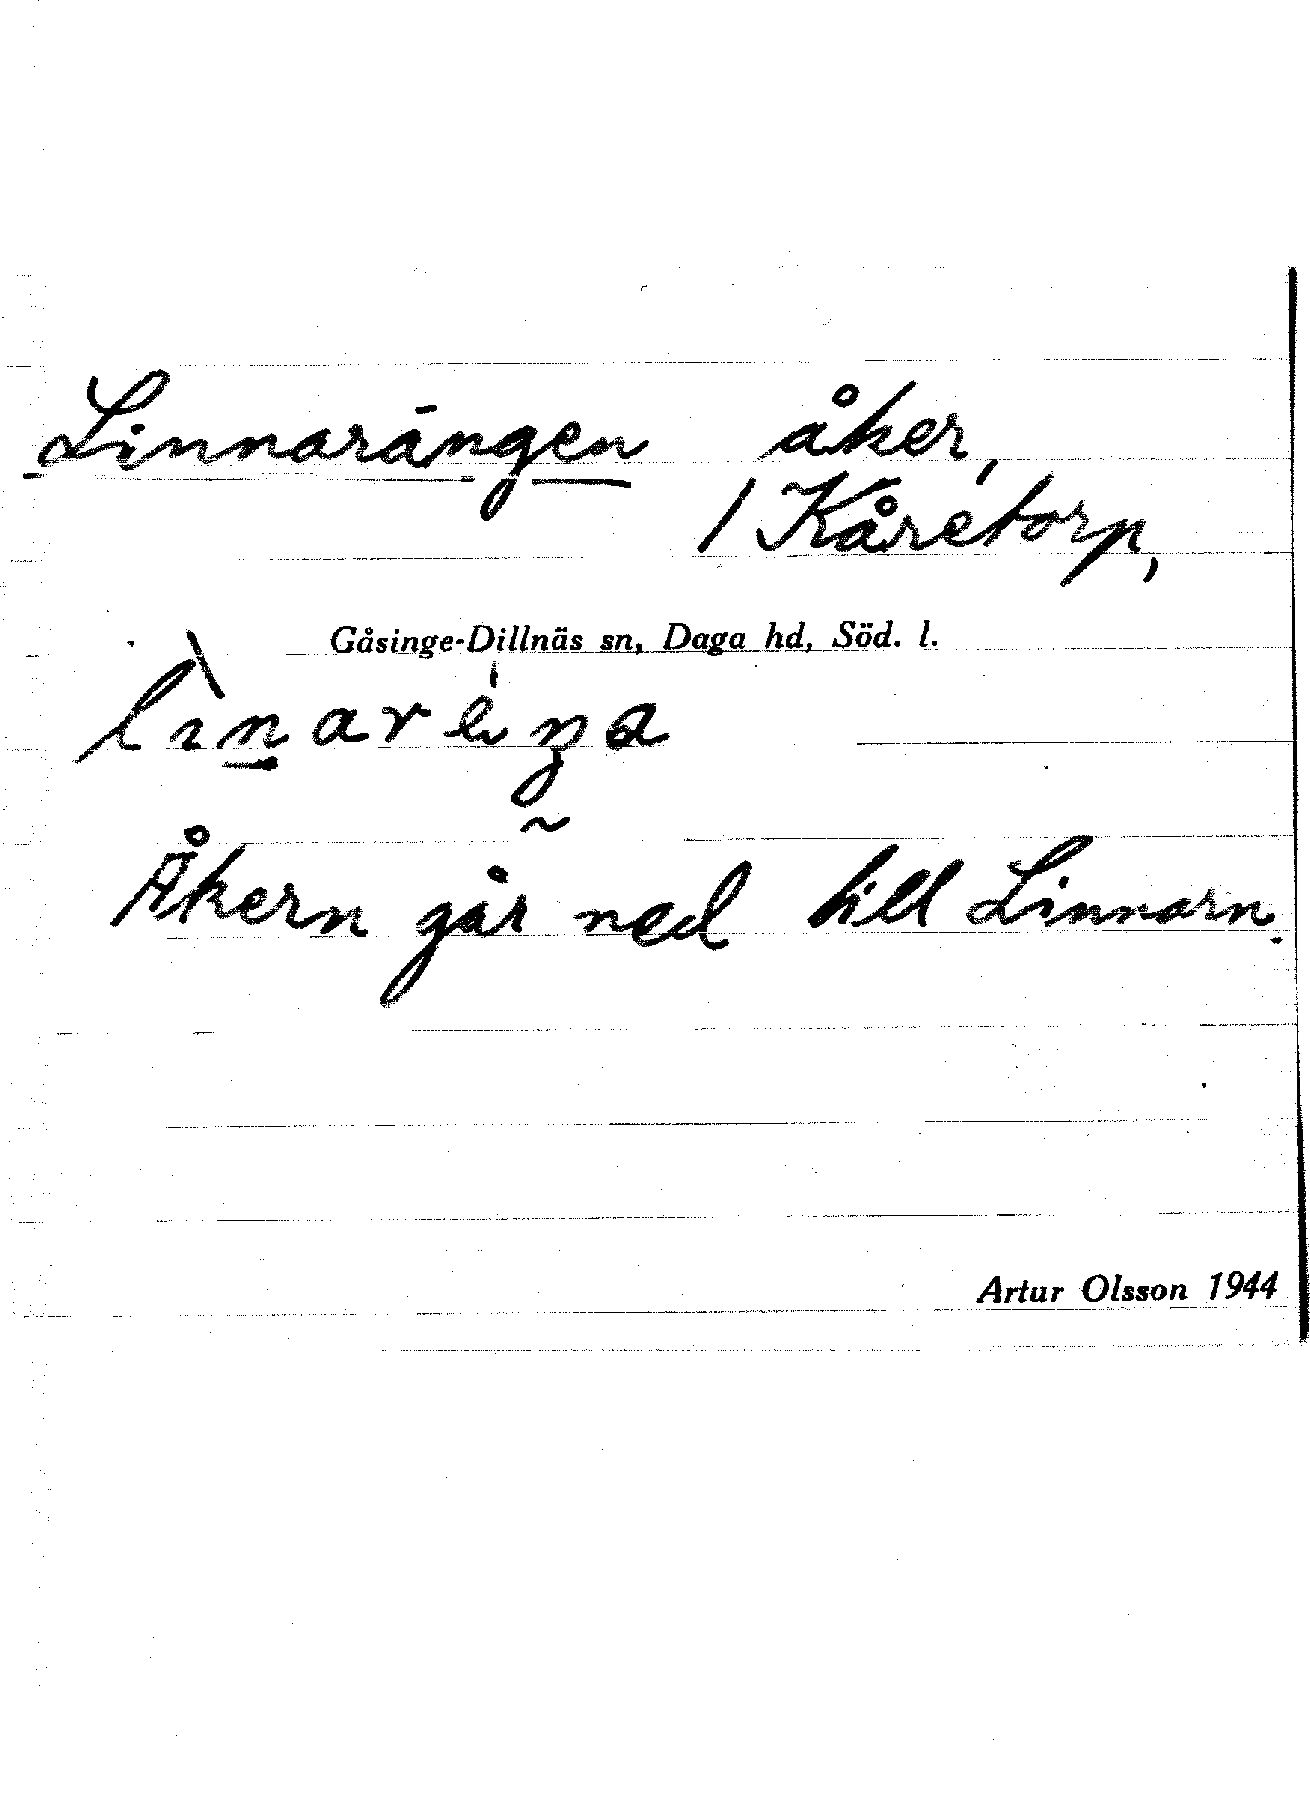 Linnarängen åker,
/ Kåretorp,
Gåsinge-Dillnäs sn, Daga hd, Söd. l.
Åkern går ned till Linnarn.
Artur Olsson 1944